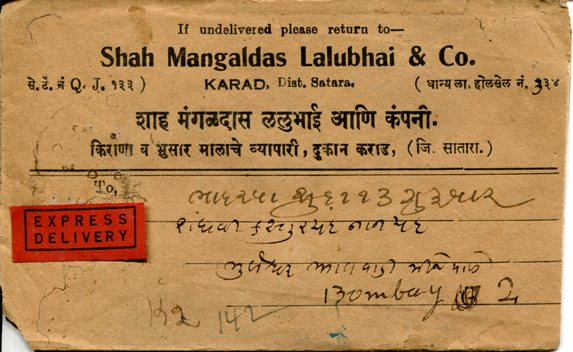 If undelivered please return to—
Shah Mangaldas Lalubhai & Co.
से. टॅ. नं Q. J. १३३
KARAD, Dist. Satara.
( धान्य ला. होलसेल नं. ३३४
शाह मंगळदास ललुभाई आणि कंपनी.
किराणा व भुसार मालाचे व्यापारी, दुकान कराड, (जि. सातारा.)
To,
ભાદરવા સુદ ૧૩ ગુરૂવાર
EXPRESS
DELIVERY
Bombay 2
142